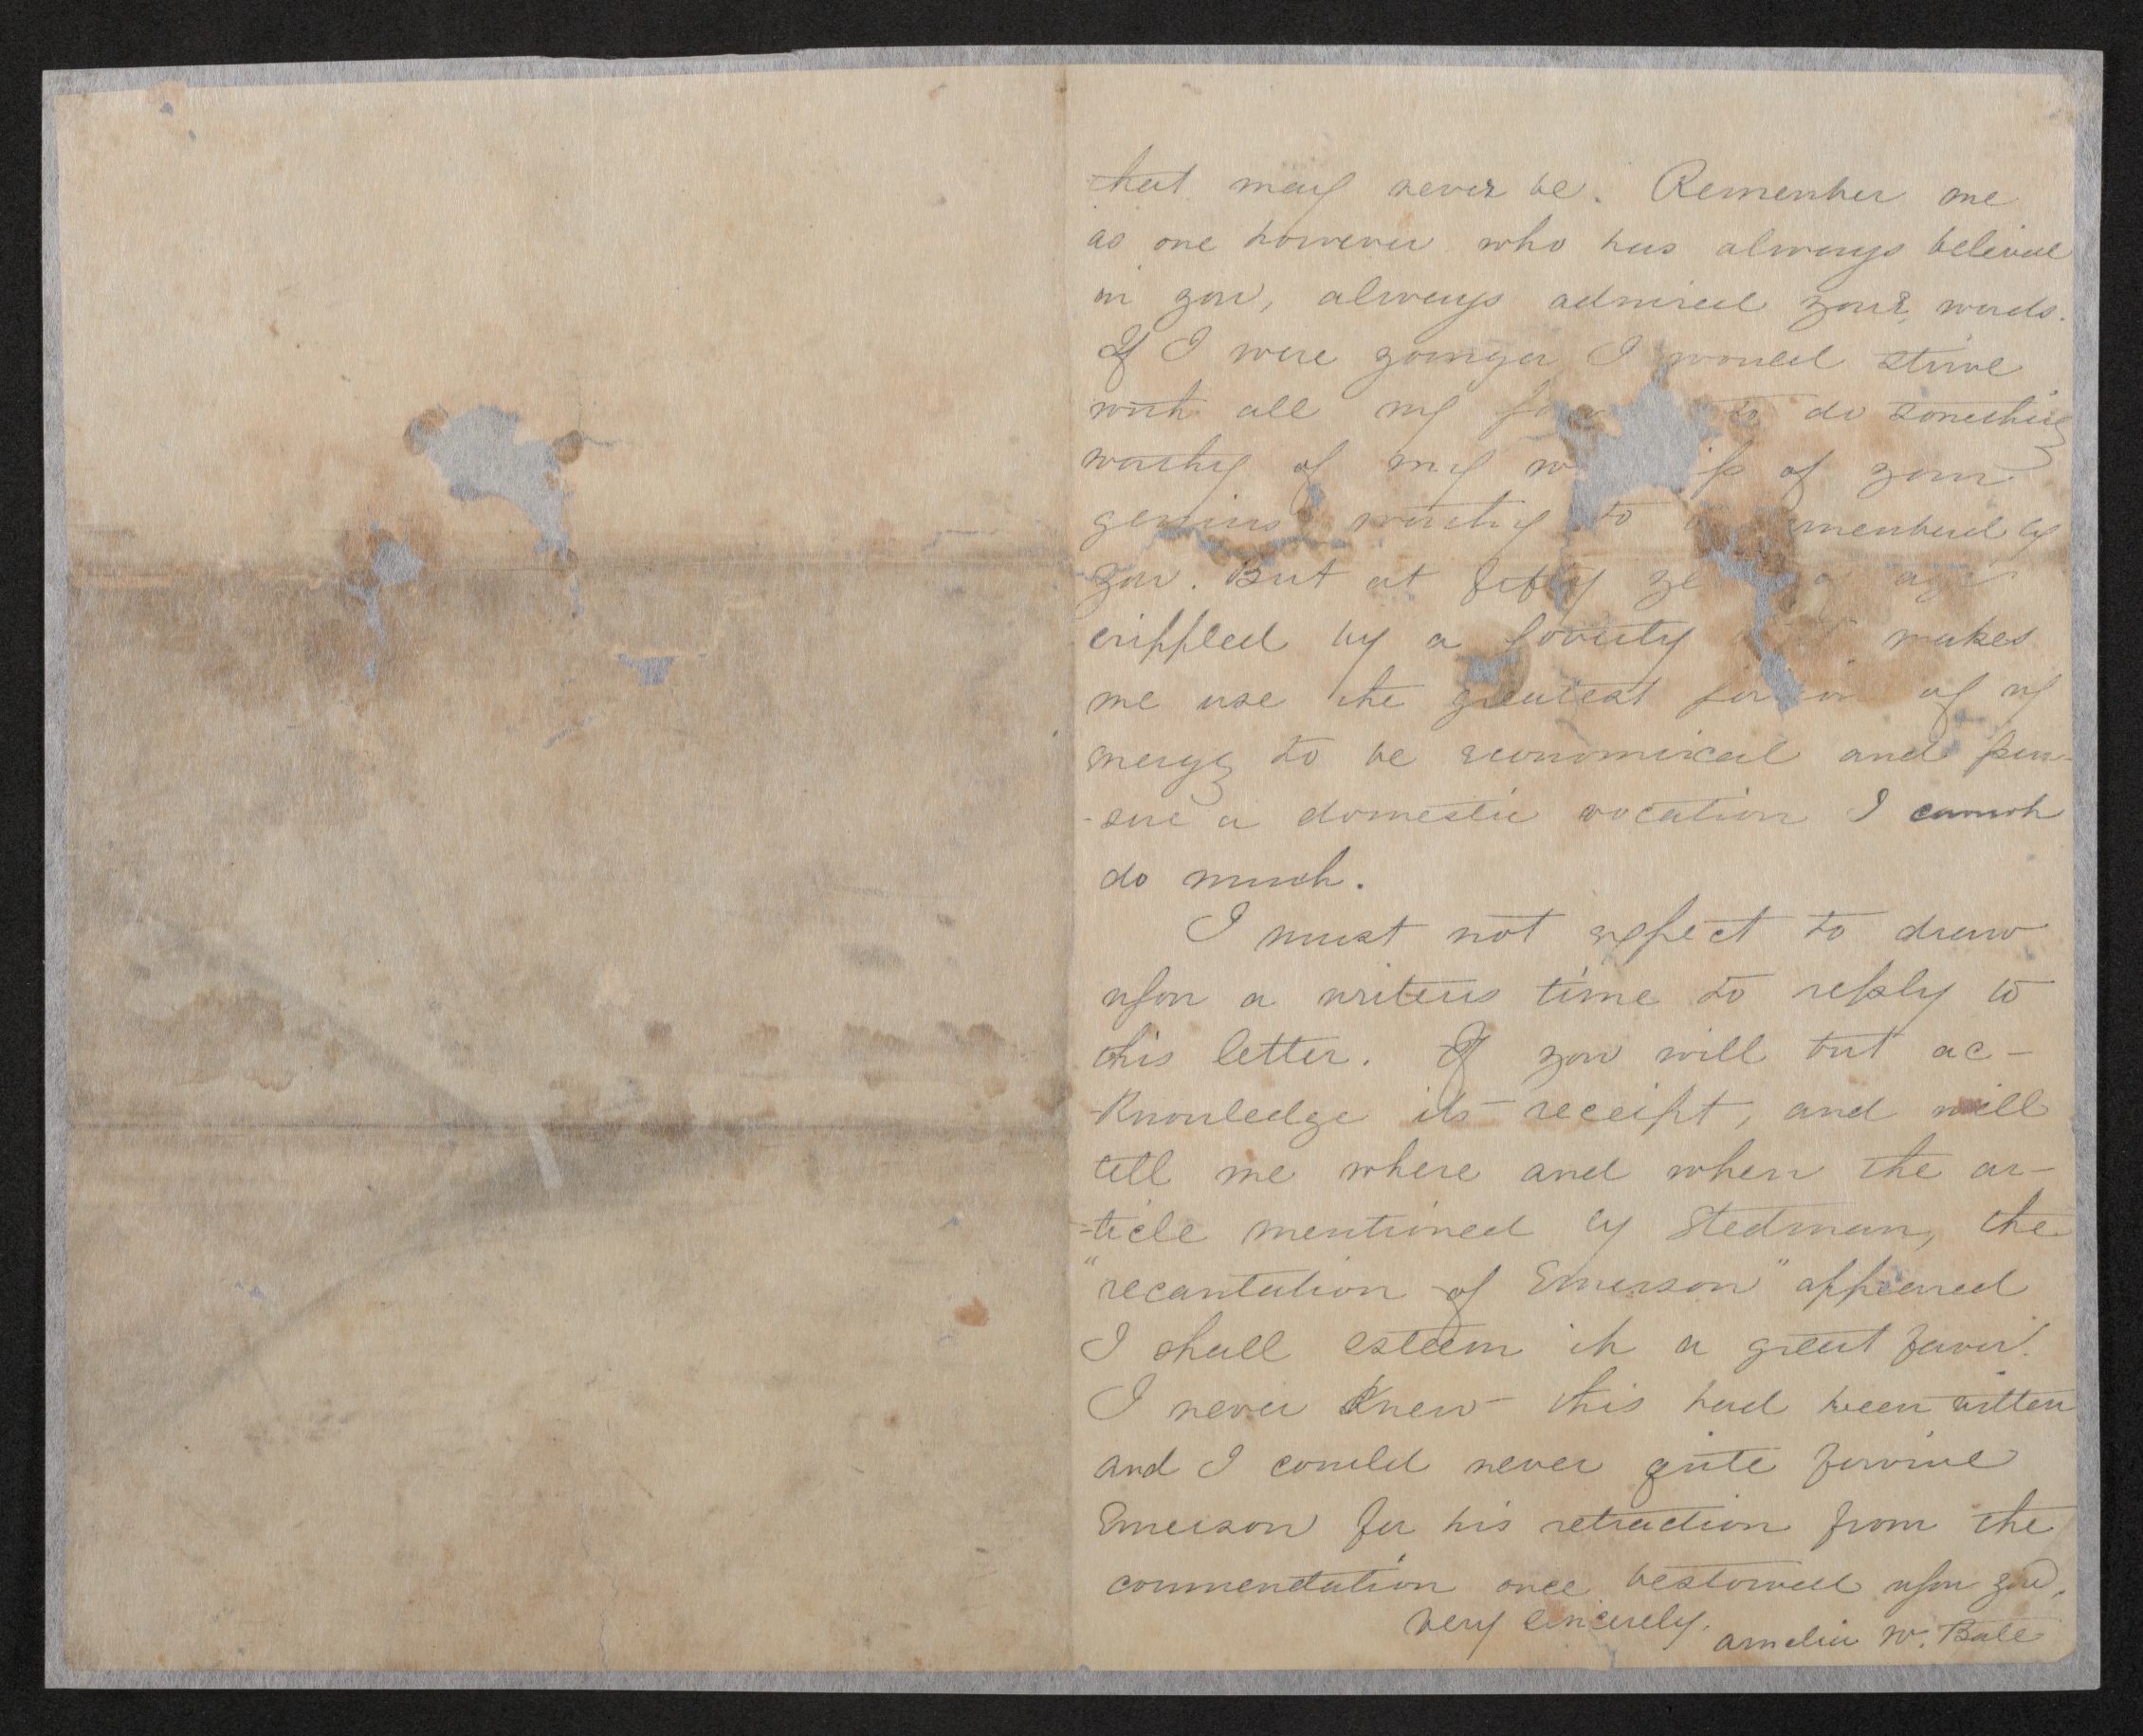 that may never be. Remember me
as one however who has always believed
in you, always admired your words.
If I were younger I would strive
with all my to do something
worthy of my of your
genius worthy to
you. But at fifty
crippled by a poverty makes
me use the greatest of my
energy to be economical and pur-
-sue a domestic vocation I cannot
do much.
I must not expect to draw
upon a writers time to reply to
this letter. If you will but ac-
-knowledge its receipt, and will
tell me where and when the ar-
-ticle mentioned by Stedman, the
"recantation of Emerson" appeared
I shall esteem it a great favor.
I never knew this had been written
and I could never quite forgive
Emerson for his retraction from the
commendation once bestowed upon you.
Very sincerely,
Amelia W. Bate